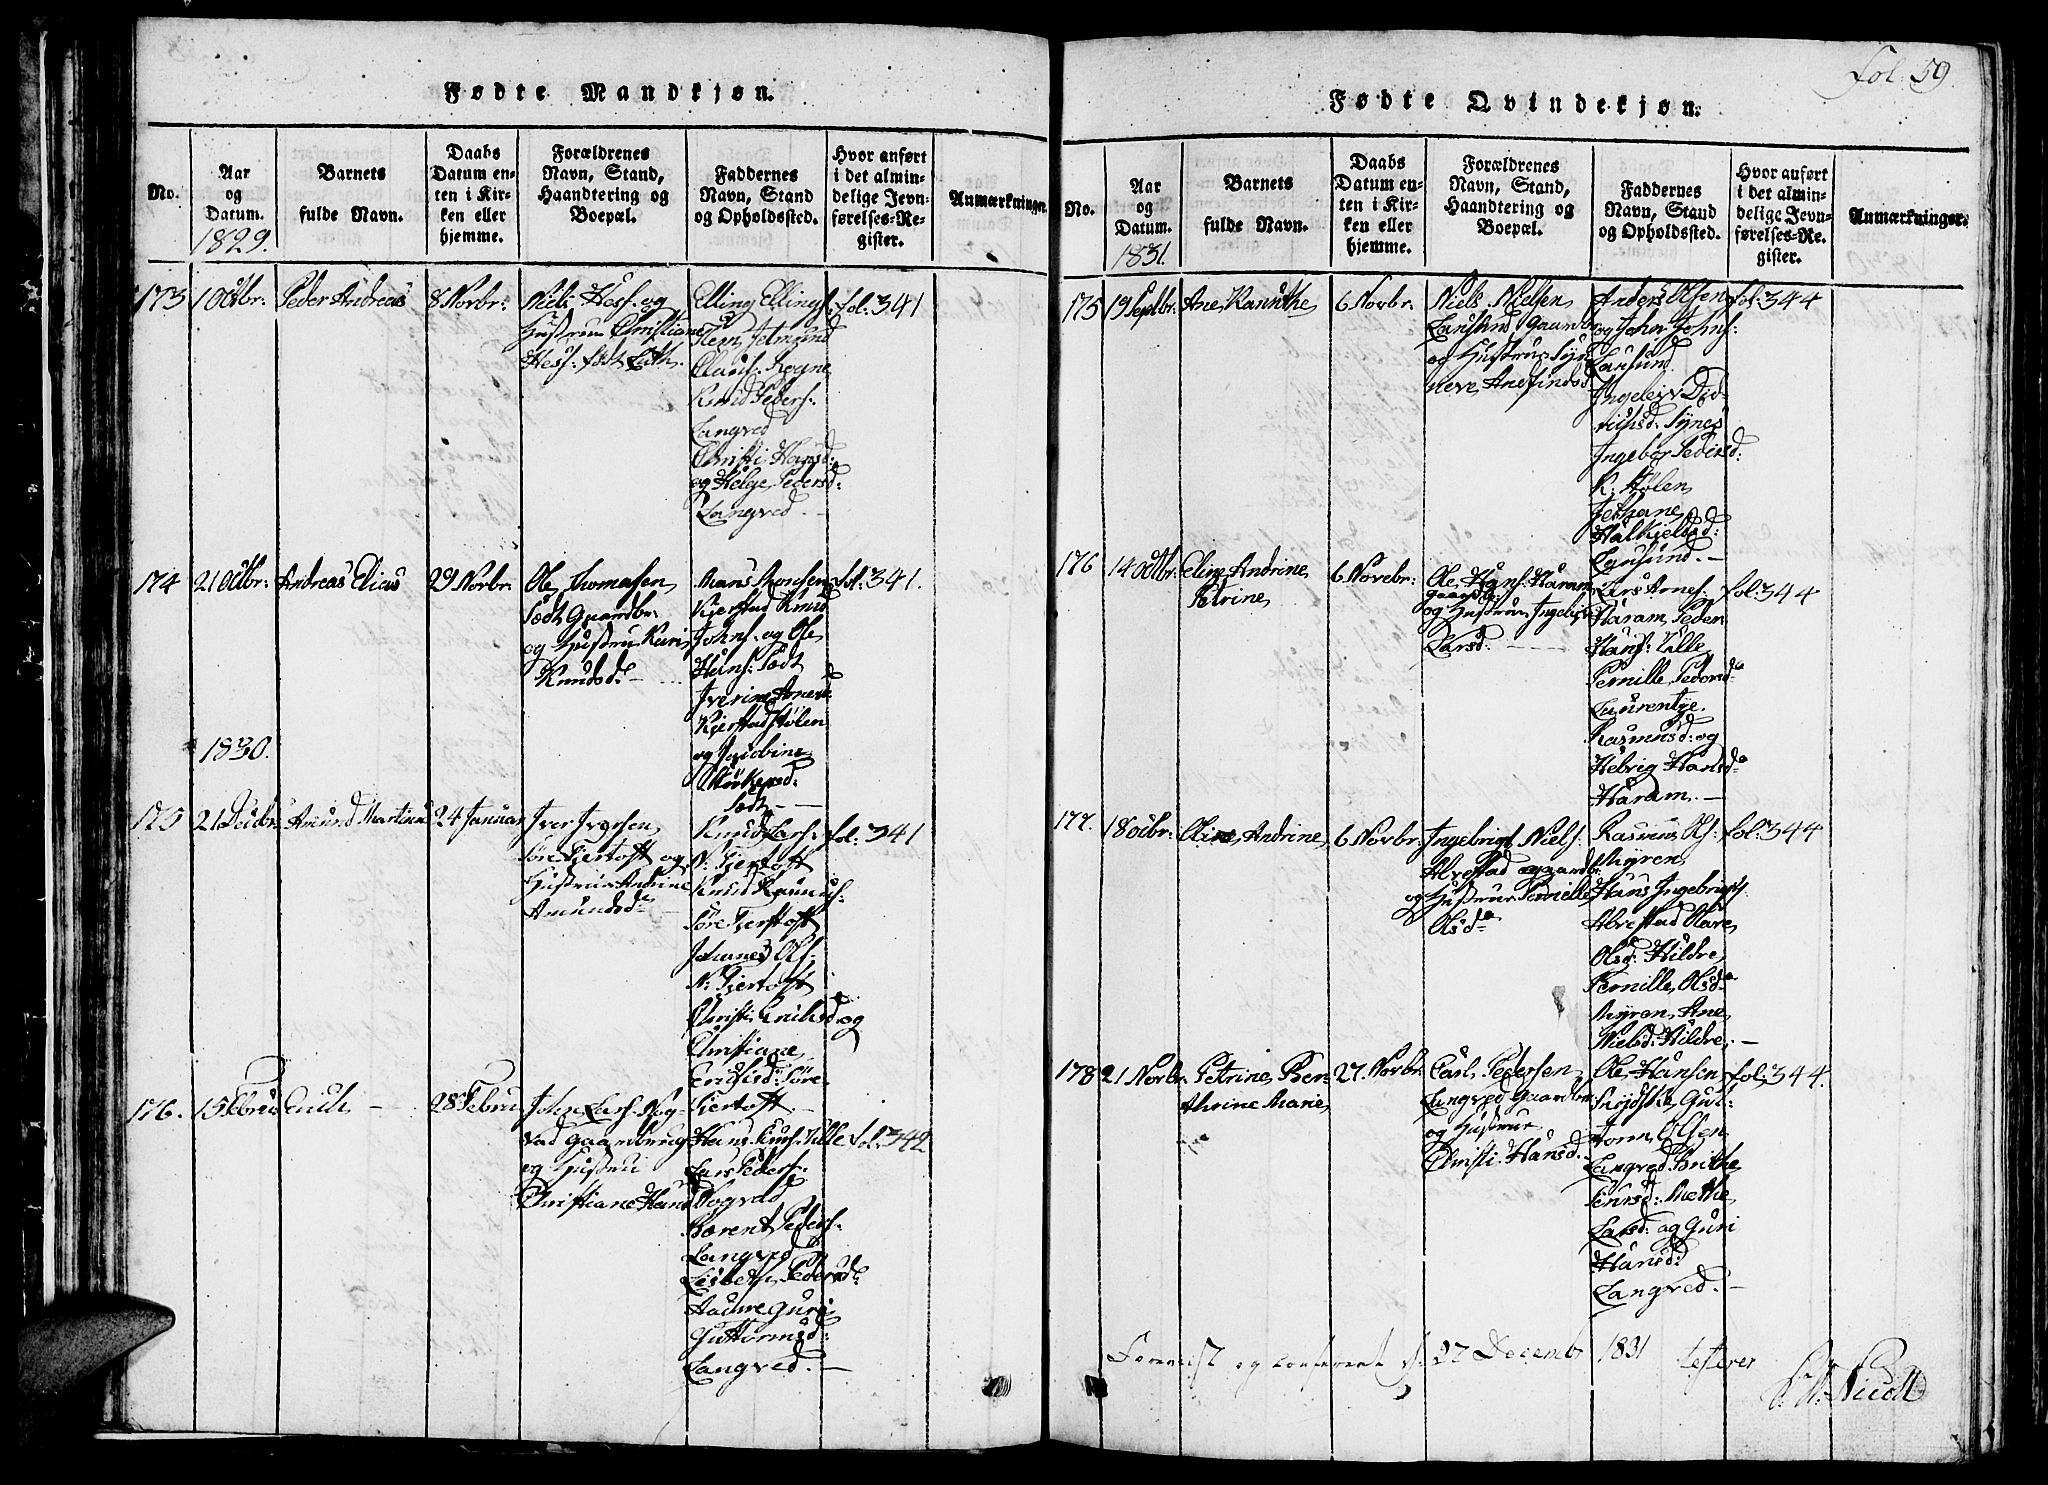 Fol. 59.
Fødte Mandkjøn.
No.
Aar
og
Datum.
1829.
Barnets
fulde Navn.
Daabs
Datum en-
ten i Kir-
ken eller
hjemme.
Forældrenes
Navn, Stand,
Haandtering og
Boepæl.
Faddernes
Navn, Stand
og Opholdssted.
Hvor anført
i det almin-
delige Jevn-
førelses-Re-
gister.
Anmærkninger.
173
1 Octbr:
Peder Andreas
8 Novbr:
Niels Hess. og
Hustrue Christiane
Hess: født
Elling Ellings:
Jelmund
Clauss: Rogne
Knud Peders:
Langved
Christi Hansd:
og Helge Pedersd:
Langved.
fol: 341
174
21 Octbr:
Andreas Elias
29 Novbr:
Ole Thomasen
Sædt Gaardbr:
og Hustrue Kari
Knudsd:
Mans Monsen
Kjerstad Knud
Johns: og Ole
Hans: Sædt
Iverine Arnesd
Kjerstadstølen
og Jacobine
Størkersd:
Sædt
fol: 341.
1830.
175
21 Decbr:
Amund Martinus
24 Januar
Iver Iversen
Søre Fjertoft og
Hustrue Andrine
Amundsd:
Knud Lars:
N: Fjertoft
Knud Rasmus:
Søre Fjertoft
Johannes Ols:
N: Fjertoft
Christi Eriksd: og
Christiane
Eriksd: Søre
Fjertoft
fol: 341
176.
15 Febru
Erich
28 Febru
John Lars: Rog-
vad gaardbrug
og Hustrue
Christiane Hansd
Hans Knuds: Ulle
Lars Peders:
Rogvad
Bærent Peders:
Langved
Lisbeth Pedersd:
Guri
Guttormsd:
Langved.
fol: 342
Fødte Qvindekjøn.
No.
Aar
og
Datum.
1831.
Barnets
fulde Navn.
Daabs
Datum en-
ten i Kir-
ken eller
hjemme.
Forældrenes
Navn, Stand,
Haandtering og
Boepæl.
Faddernes
Navn, Stand
og Opholdssted.
Hvor anført
i det almin-
delige Jevn-
førelses-Re-
gister.
Anmærkninger.
175
19 Septbr:
Ane Kanuthe
6 Novbr:
Niels Nielsen
Lausund Gaardbr
og Hustrue Syn
neve Andfindsd
Anders Olsen
og John Johns:
Lausund
Ingelev Did-
richsd: Synes
Ingebor Pedersd:
K: Stølen
Jethane
Halkjelsd:
Lausund.
fol: 344
176
14 Octbr:
Eline Andrine
Petrine
6 Novebr:
Ole Hans: Haram
gaardbr
og Hustrue Ingebor
Larsd:
Lars Arnes:
Haram, Peder
Hans: Ulle
Pernille Pedersd
Laurentze
Rasmusd: og
Hebrig Hansd
Haram.
fol: 344
177.
18 Octbr:
Oline Andrine
6 Novbr:
Ingebrigt Niels:
Alvestad gaardbr
og Hustrue Pernille
Olsd
Rasmus Ols:
Myren
Hans Ingebrigts
Alvestad Maren
Olsd: Hildre
Pernille Olsd
Myren Ane
Nielsd: Hildre.
fol: 344
178
21 Novbr:
Petrine Ber-
thrine Marie
27 Novbr:
Carl Pedersen
Langved Gaardbr
og Hustrue
Christi Hansd.
Ole Hansen
Gut-
torm Olsen
Langved Brithe
Methe
Larsd: og Guri
Hansd:
Langved.
fol: 344.
Foreviist og confereret d: 27 Decemb 1831 testerer